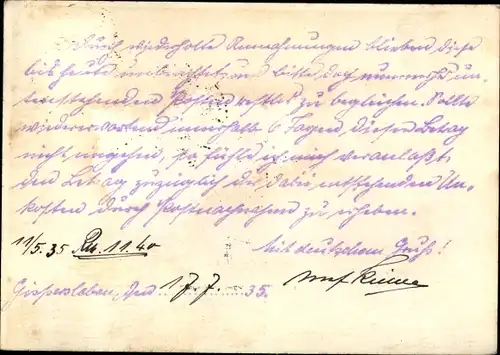 Auch wiederholte Anmahnungen blieben diese
bis heute unbeachtet und bitte doch nunmehr un-
tenstehenden Posten restlos zu begleichen. Sollte
wiedererwartend innerhalb 6 Tagen, dieser Betrag
nicht eingehen, so fühle ich mich veranlaßt,
den Betrag zuzüglich der dabei entstehenden Un-
kosten durch Postnachnahme zu erheben.
11/5. 35 Rm. 11.40
Mit deutschem Gruß!
Gispersleben, den 17. 7. 35.